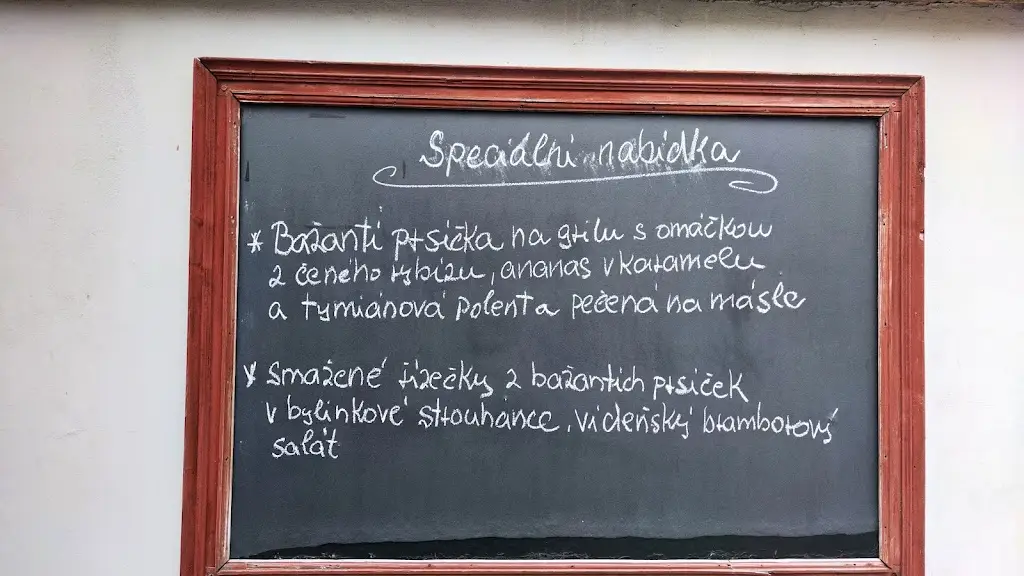 Speciální nabídka
* Bažantí prsíčka na grilu s omáčkou
z čeného rybízu, ananas v karamelu
a tymiánová polenta pečená na másle
* Smažené řízečky z bažantích prsíček
v bylinkové strouhance, vídeňský bramborový
salát